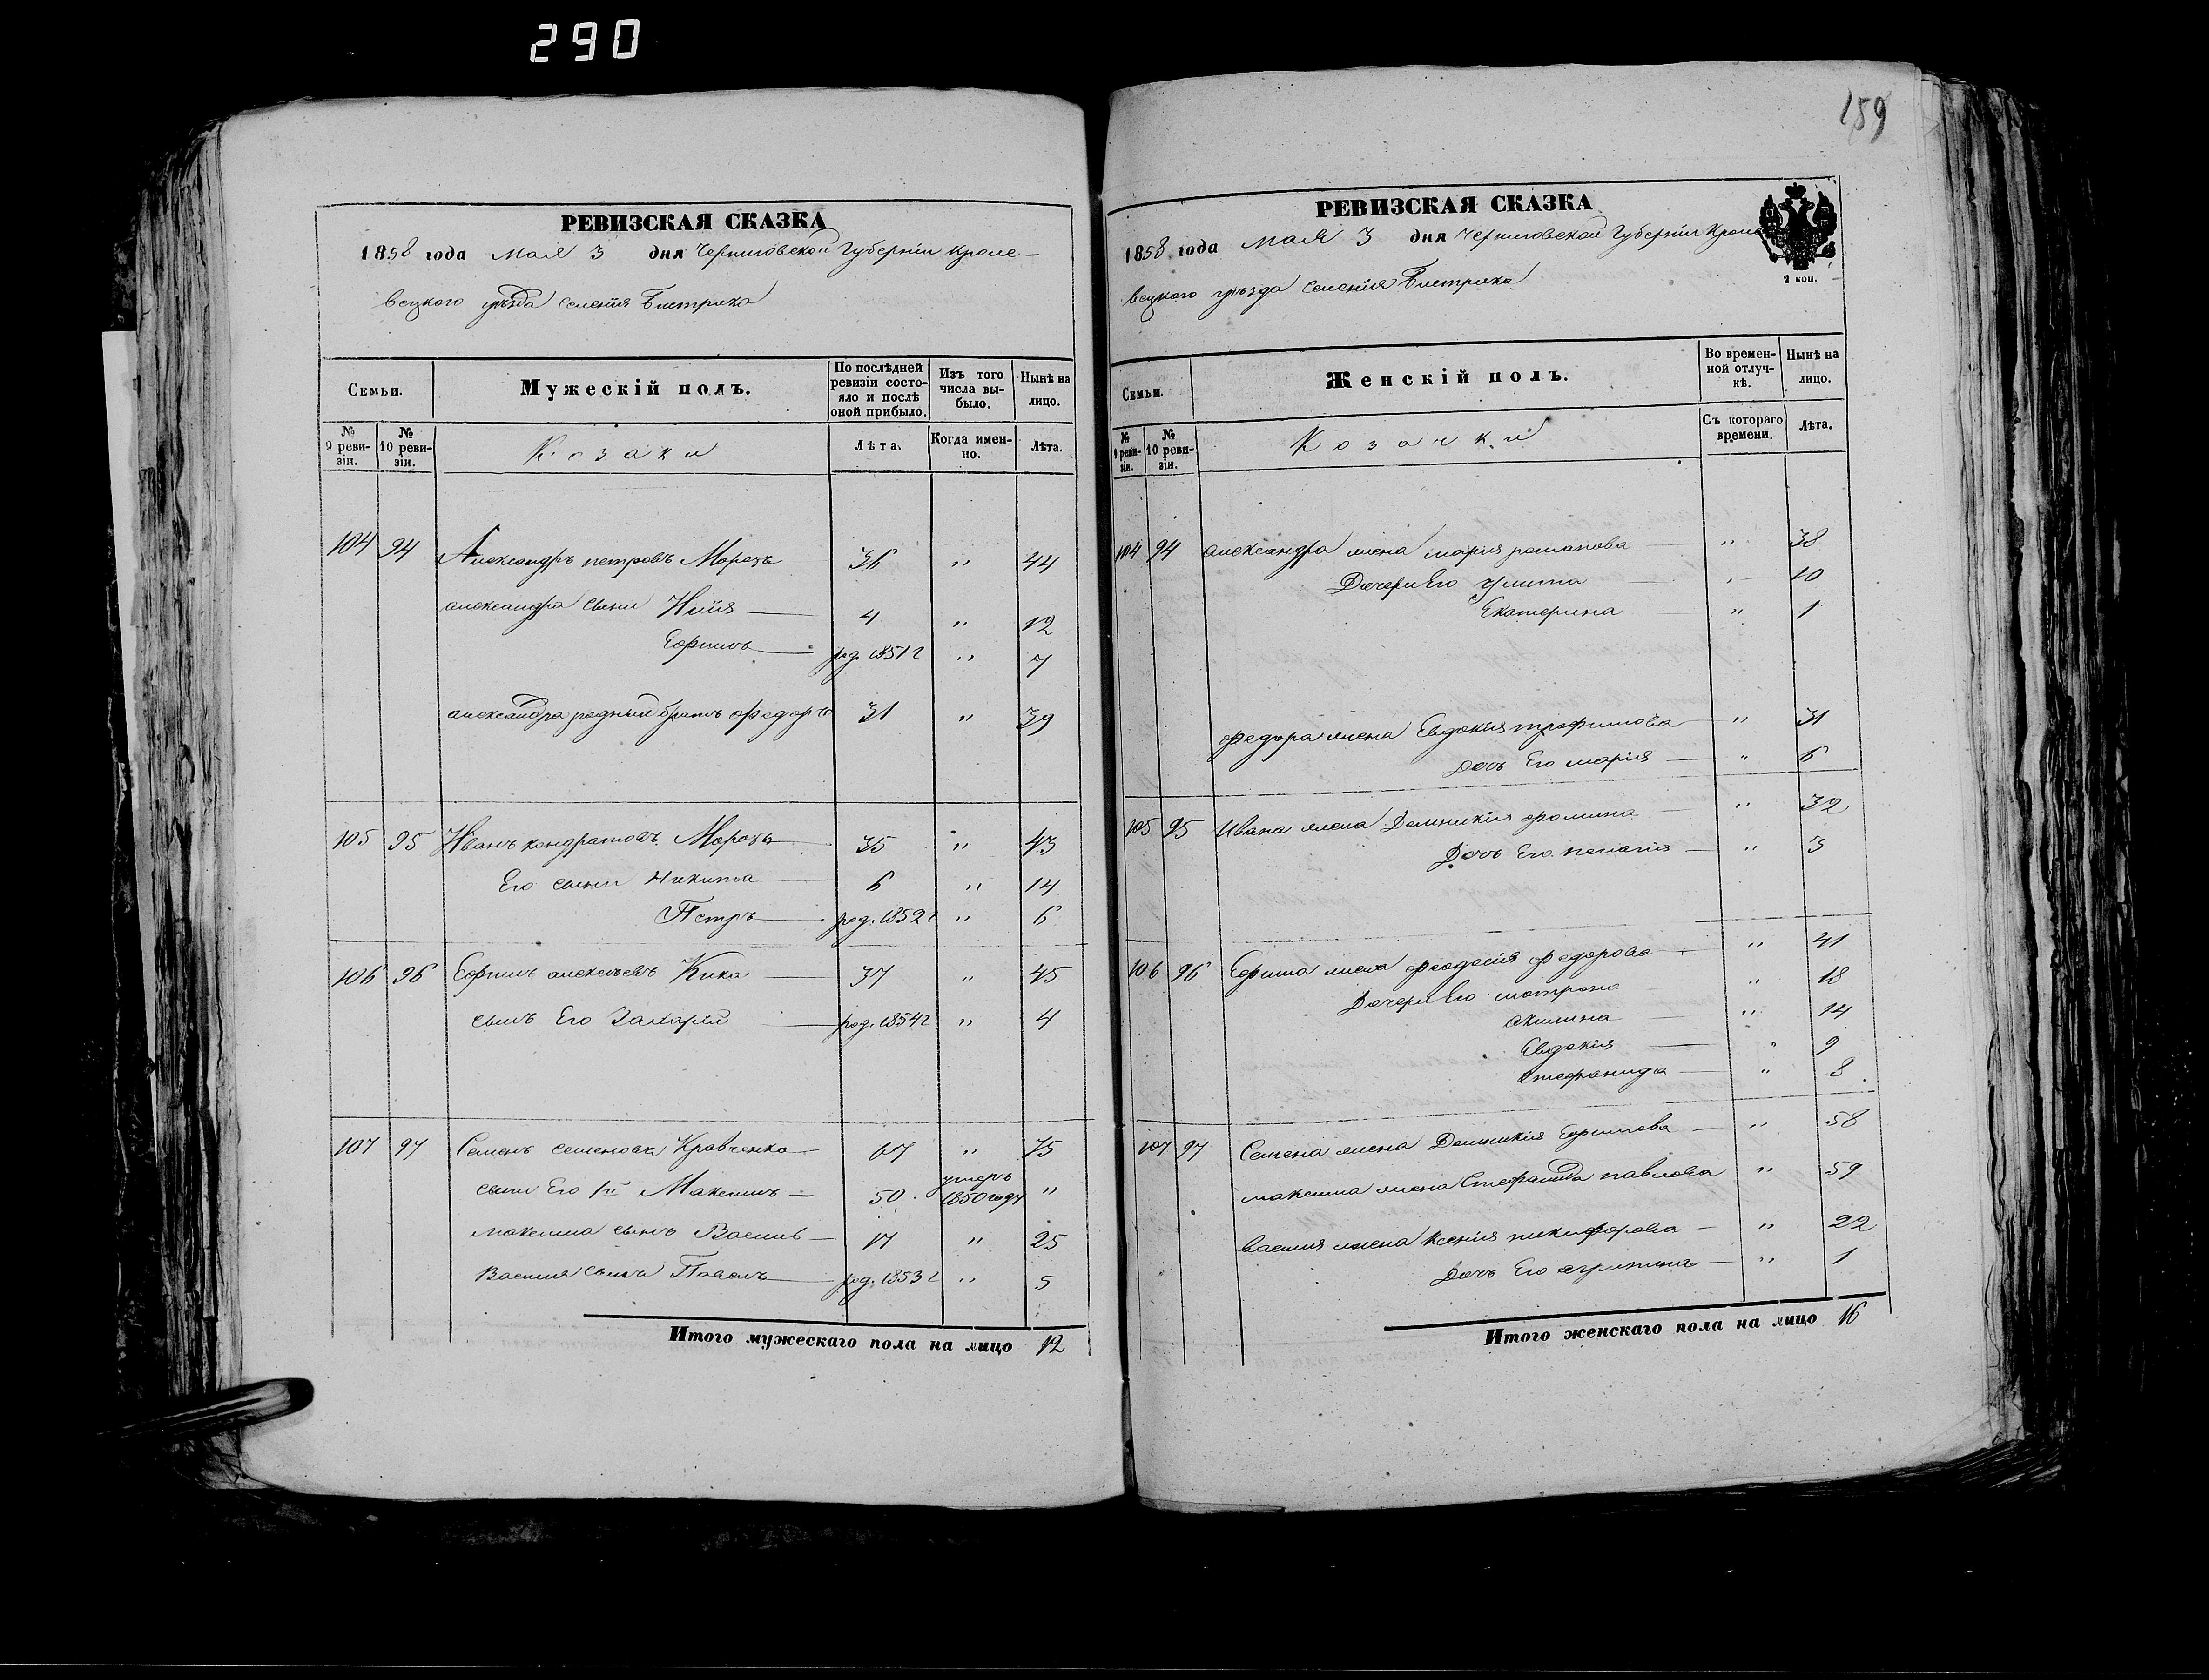 290
159
РЕВИЗСКАЯ СКАЗКА
1858 года Мая 3 дня Черниговской Губернiи Кроле-
вецкого уѣзда Селенiя Бистрика
Семьи.
Мужескiй полъ.
По послѣдней ревизiи состояло и послѣ оной прибыло.
Изъ того числа выбыло.
Нынѣ на лицо.
№ 9 ревизiи.
№ 10 ревизiи.
Козаки
Лѣта.
Когда именно.
Лѣта.
104 94 Александръ петровъ Морозъ 36 " 44
александра сыны Илiя 4 " 12
Ефимъ род. 1851 г " 7
александра родный братъ федоръ 31 " 39
105 95 Иванъ кондратовъ Морозъ 35 " 43
Его сыны Никита 6 " 14
Петръ род. 1852 г " 6
106 96 Ефимъ алексѣевъ Кика 37 " 45
сынъ Его Захарiй род. 1854 г " 4
107 97 Семенъ семеновъ Кравченко 67 " 75
сыны Его 1й Максимъ 50 умеръ 1850 году "
максима сынъ Василь 17 " 25
Василя сынъ Павелъ род. 1853 г " 5
Итого мужескаго пола на лицо 12
РЕВИЗСКАЯ СКАЗКА
1858 года Мая 3 дня Черниговской Губернiи Кроле
вецкого уѣзда Селенiя Бистрика
2 коп.
Семьи.
Женскiй полъ.
Во временной отлучкѣ.
Нынѣ на лицо.
№ 9 ревизiи.
№ 10 ревизiи.
Козачки
Съ котораго времени.
Лѣта.
104 94 александра жена марiя романова " 38
Дочери Его Улита " 10
Екатерина " 1
федора жена Евдокiя трофимова " 31
Дочь Его марiя " 6
105 95 Ивана жена Домникiя фомина " 32
Дочь Его пелагiя " 3
106 96 Ефима жена феодосiя федорова " 41
Дочери Его мотрона " 18
акилина " 14
Евдокiя " 9
Стефанида " 8
107 97 Семена жена Домникiя Ефимова " 58
максима жена Стефанида павлова " 59
василя жена ксенiя никифорова " 22
Дочь Его агрипина " 1
Итого женскаго пола на лицо 16